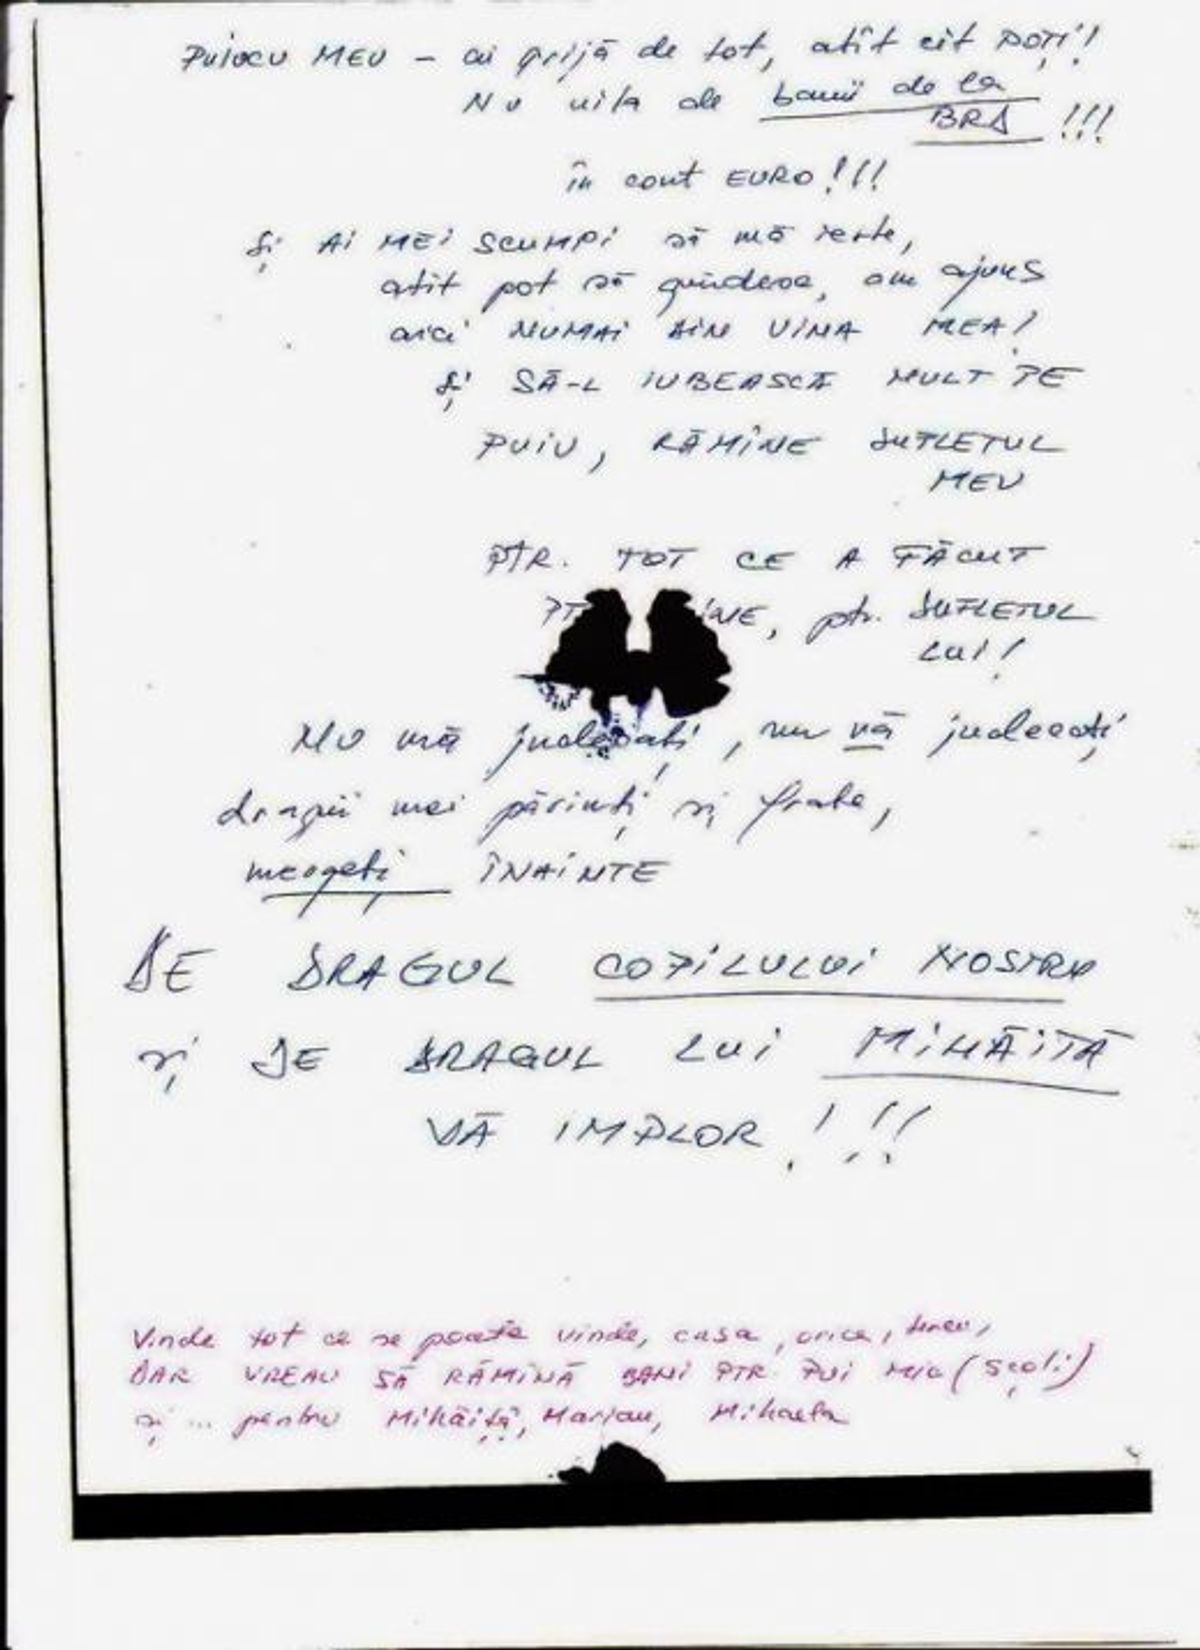 PUIOCU MEU – ai grijă de tot, atît cît POȚI!
NU uita de banii de la
BRD !!!
în cont EURO!!!
Și AI MEI SCUMPI să mă ierte,
atît pot să gîndesc, am ajuns
aici NUMAI DIN VINA MEA!
Și SĂ-L IUBEASCĂ MULT PE
PUIU, RĂMÎNE SUFLETUL
MEU
PTR. TOT CE A FĂCUT
ptr. SUFLETUL
LUI!
NU mă judecați, nu vă judecați
dragii mei părinți și frate,
mergeți ÎNAINTE
DE DRAGUL COPILULUI NOSTRU
și DE DRAGUL LUI MIHĂIȚĂ
VĂ IMPLOR!!!
Vinde tot ce se poate vinde, casa, orice,
DAR VREAU SĂ RĂMÎNĂ BANI PTR. PUI MIC (școli)
și ... pentru Mihăiță, Marian, Mihaela